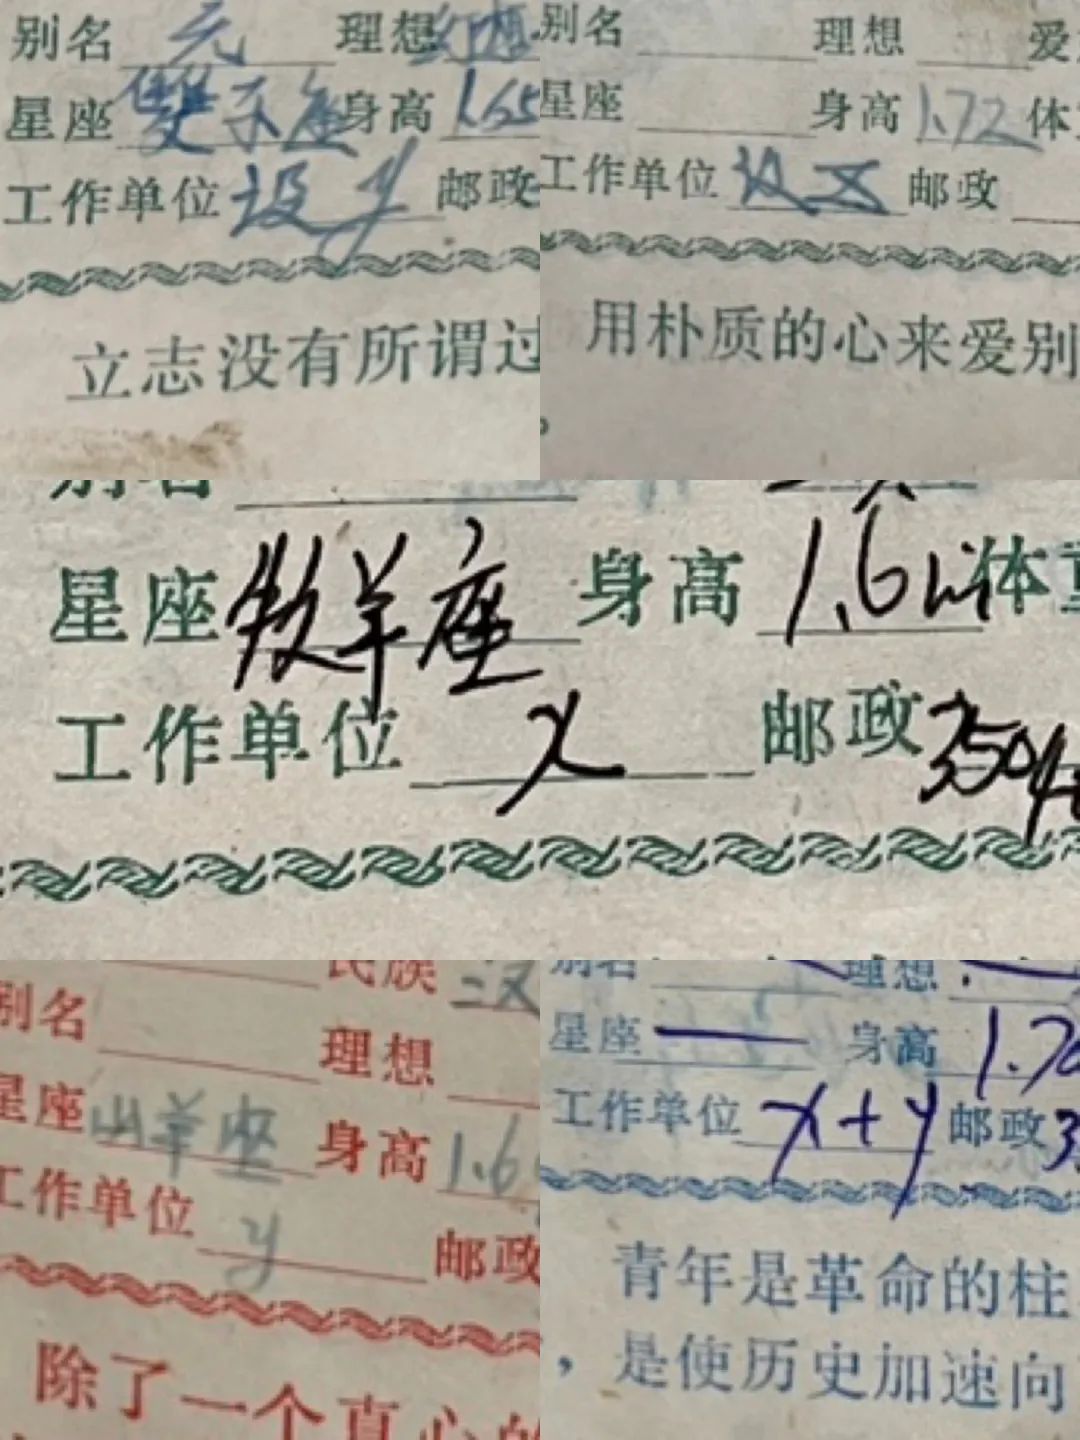 别名 无 理想
星座 雙子座 身高 1.65
工作单位 设y 邮政
立志没有所谓过
别名 理想 爱
星座 身高 1.72 体
工作单位 设X 邮政
用朴质的心来爱别
。
别名
星座 牧羊座 身高 1.6m 体重
工作单位 x 邮政 350
民族 汉
别名 理想
星座 山羊座 身高 1.6
工作单位 y 邮政
除了一个真心的
别名 理想
星座 一 身高 1.70
工作单位 x+y 邮政 3
青年是革命的柱
，是使历史加速向